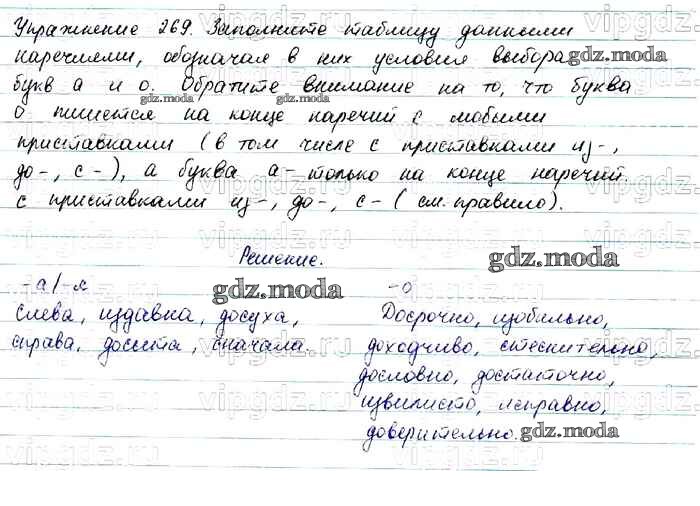 Упражнение 269. Заполните таблицу данными
наречиями, обозначая в них условия выбора
букв а и о. Обратите внимание на то, что буква
о пишется на конце наречий с любыми
приставками (в том числе с приставками из-,
до-, с-), а буква а- только на конце наречий
с приставками из-, до-, с- (см. правило).
Решение.
-а/-я -о
Слева, издавна, досуха, Досрочно, изобильно,
справа, досыта, сначала. доходчиво, стеснительно,
дословно, достаточно,
извилисто, исправно,
доверительно.
gdz.moda
vipgdz.ru